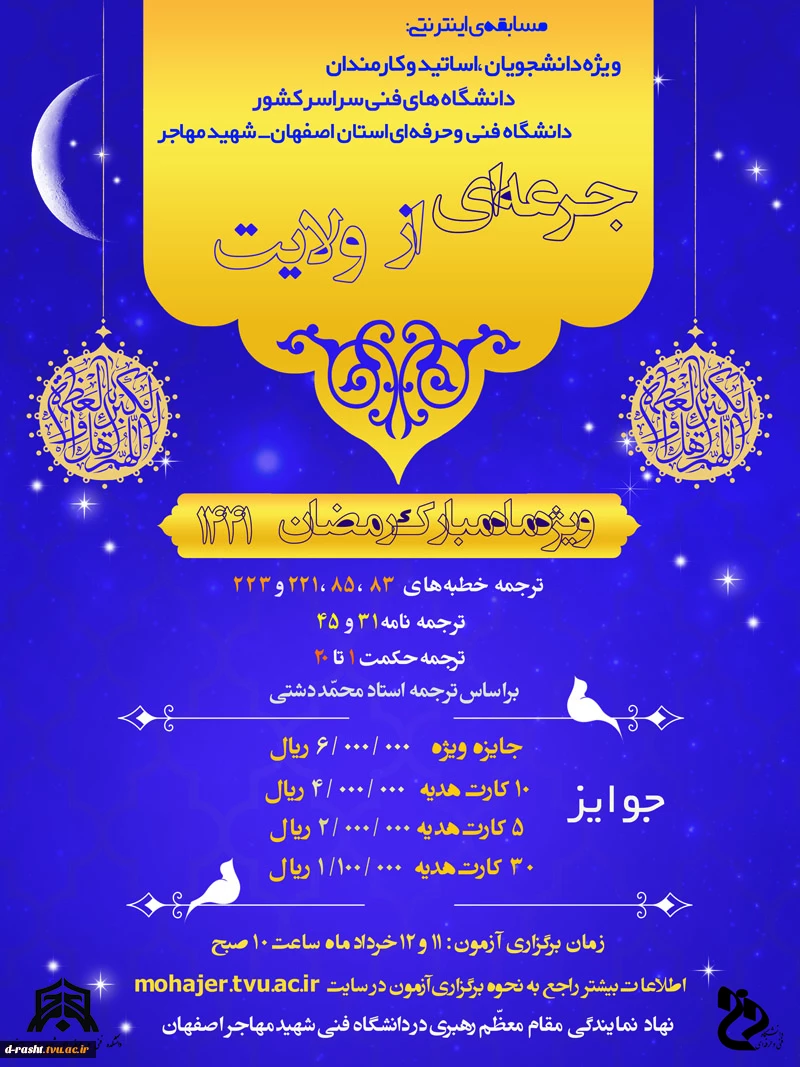 مسابقه‌ی اینترنتی:
ویژه دانشجویان ،اساتید و کارمندان
دانشگاه های فنی سراسر کشور
دانشگاه فنی و حرفه ای استان اصفهان_ شهید مهاجر
جرعه‌ای از ولایت
ویژه ماه مبارک رمضان ۱۴۴۱
ترجمه خطبه های ۸۳ ،۸۵ ،۲۲۱ و ۲۲۳
ترجمه نامه ۳۱ و ۴۵
ترجمه حکمت ۱ تا ۲۰
براساس ترجمه استاد محمّد دشتی
جوایز
جایزه ویژه ۶/۰۰۰/۰۰۰ ریال
۱۰ کارت هدیه ۴/۰۰۰/۰۰۰ ریال
۵ کارت هدیه ۲/۰۰۰/۰۰۰ ریال
۳۰ کارت هدیه ۱/۱۰۰/۰۰۰ ریال
زمان برگزاری آزمون: ۱۱ و ۱۲ خرداد ماه ساعت ۱۰ صبح
اطلاعات بیشتر راجع به نحوه برگزاری آزمون در سایت mohajer.tvu.ac.ir
نهاد نمایندگی مقام معظّم رهبری در دانشگاه فنی شهید مهاجر اصفهان
d-rasht.tvu.ac.ir